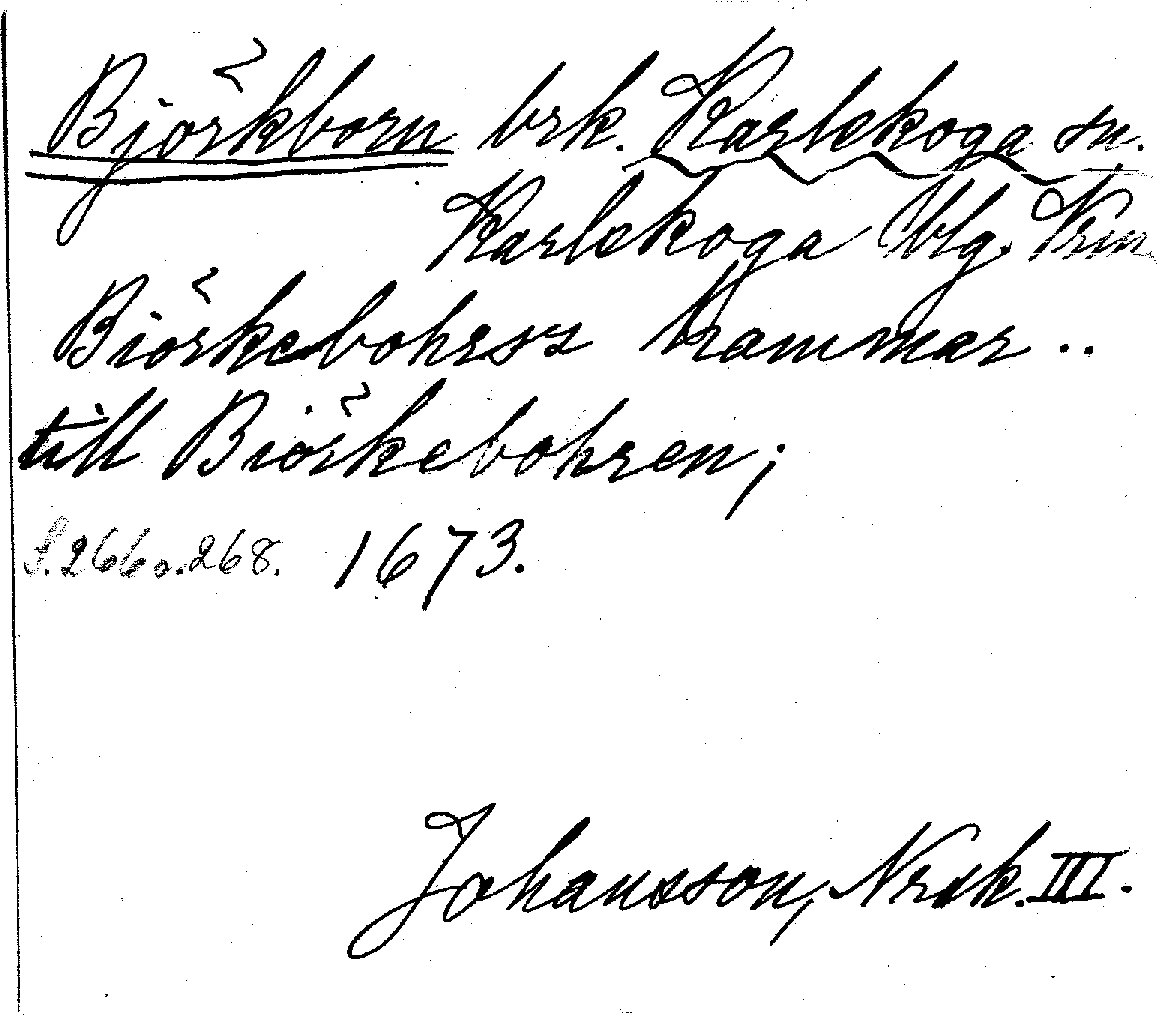 Björkborn brk. Karlskoga sn.
Karlskoga blg. Vrm
Biörkebohrss hammar ..
till Biörkebohren;
S. 266 o. 268. 1673.
Johansson, Nrsk. III.